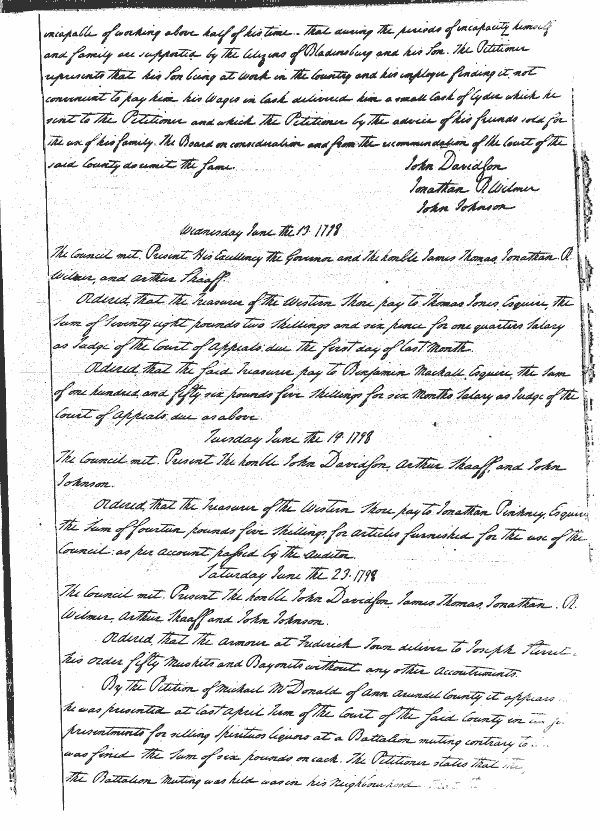 incapable of working above half of his time - that during the periods of incapacity himself
and family are supported by the Citizens of Bladensburg and his Son. The Petitioner
represents that his Son being at work in the Country and his employer finding it not
convenient to pay him his wages in Cash delivered him a small Cask of Cyder which he
sent to the Petitioner and which the Petitioner by the advice of his friends sold for
the use of his family. The Board on consideration and from the recommendation of the Court of the
said County do remit the same.
John Davidson
Jonathan R Wilmer
John Johnson
Wednesday June the 13. 1798
The Council met. Present His Excellency the Governor and the honble James Thomas, Jonathan R.
Wilmer, and Arthur Shaaff.
Ordered, that the Treasurer of the Western Shore pay to Thomas Jones Esquire, the
Sum of Seventy eight pounds two shillings and six pence for one quarters Salary
as Judge of the Court of Appeals, due the first day of last Month.
Ordered that the said Treasurer pay to Benjamin Mackall Esquire, the Sum
of one hundred, and fifty six pounds five shillings for six Months Salary as Judge of the
Court of Appeals, due as above.
Tuesday June the 19. 1798
The Council met. Present the honble John Davidson, Arthur Shaaff, and John
Johnson.
Ordered, that the Treasurer of the Western Shore pay to Jonathan Pinkney, Esquire
the Sum of fourteen pounds five shillings for articles furnished for the use of the
Council: as per account passed by the Auditor.
Saturday June the 23. 1798
The Council met. Present the honble John Davidson James Thomas, Jonathan. R.
Wilmer, Arthur Shaaff and John Johnson.
Ordered, that the Armour at Frederick Town deliver to Joseph
his order fifty Muskets and Bayonets without any other accoutrements.
By the Petition of Michael McDonald of Ann Arundel County it appears
he was presented at last April Term of the Court of the said County in
presentments for selling Spiritous liquors at a Battalion muting contrary to
was fined the Sum of six pounds on each. The Petitioner states that
the Battalion Muting was held was in his Neighbourhood